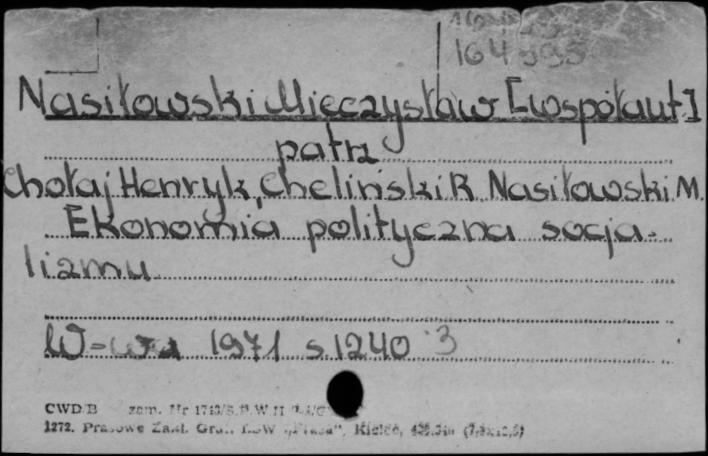 164995
Nasiłowski Mieczysław [współaut]
patrz
Chołaj Henryk, Cheliński R. Nasiłowski M.
Ekonomia polityczna socja-
lizmu
W-wa 1971 s. 1240 3
CWD/B zam. Nr
1272. Prasowe Zakł. Graf. RSW „Prasa”, Kielce,